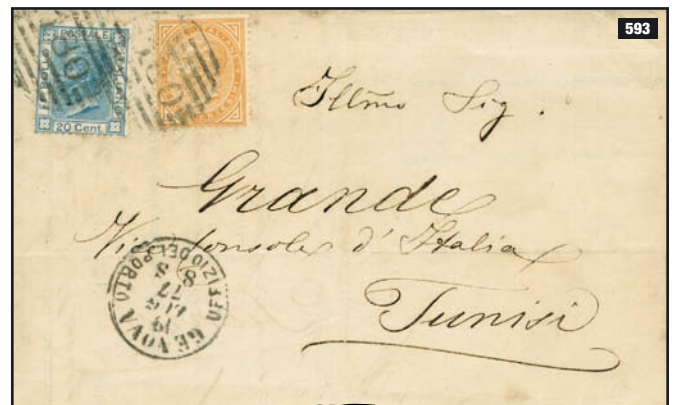 593
POSTALE
BOLLO
ITALIANO
20 Cent
Illmo Sig.
Grande
Vice Console d'Italia
Tunisi
GENOVA
UFFIZIO DEL PORTO
19
LUG
77
8 S